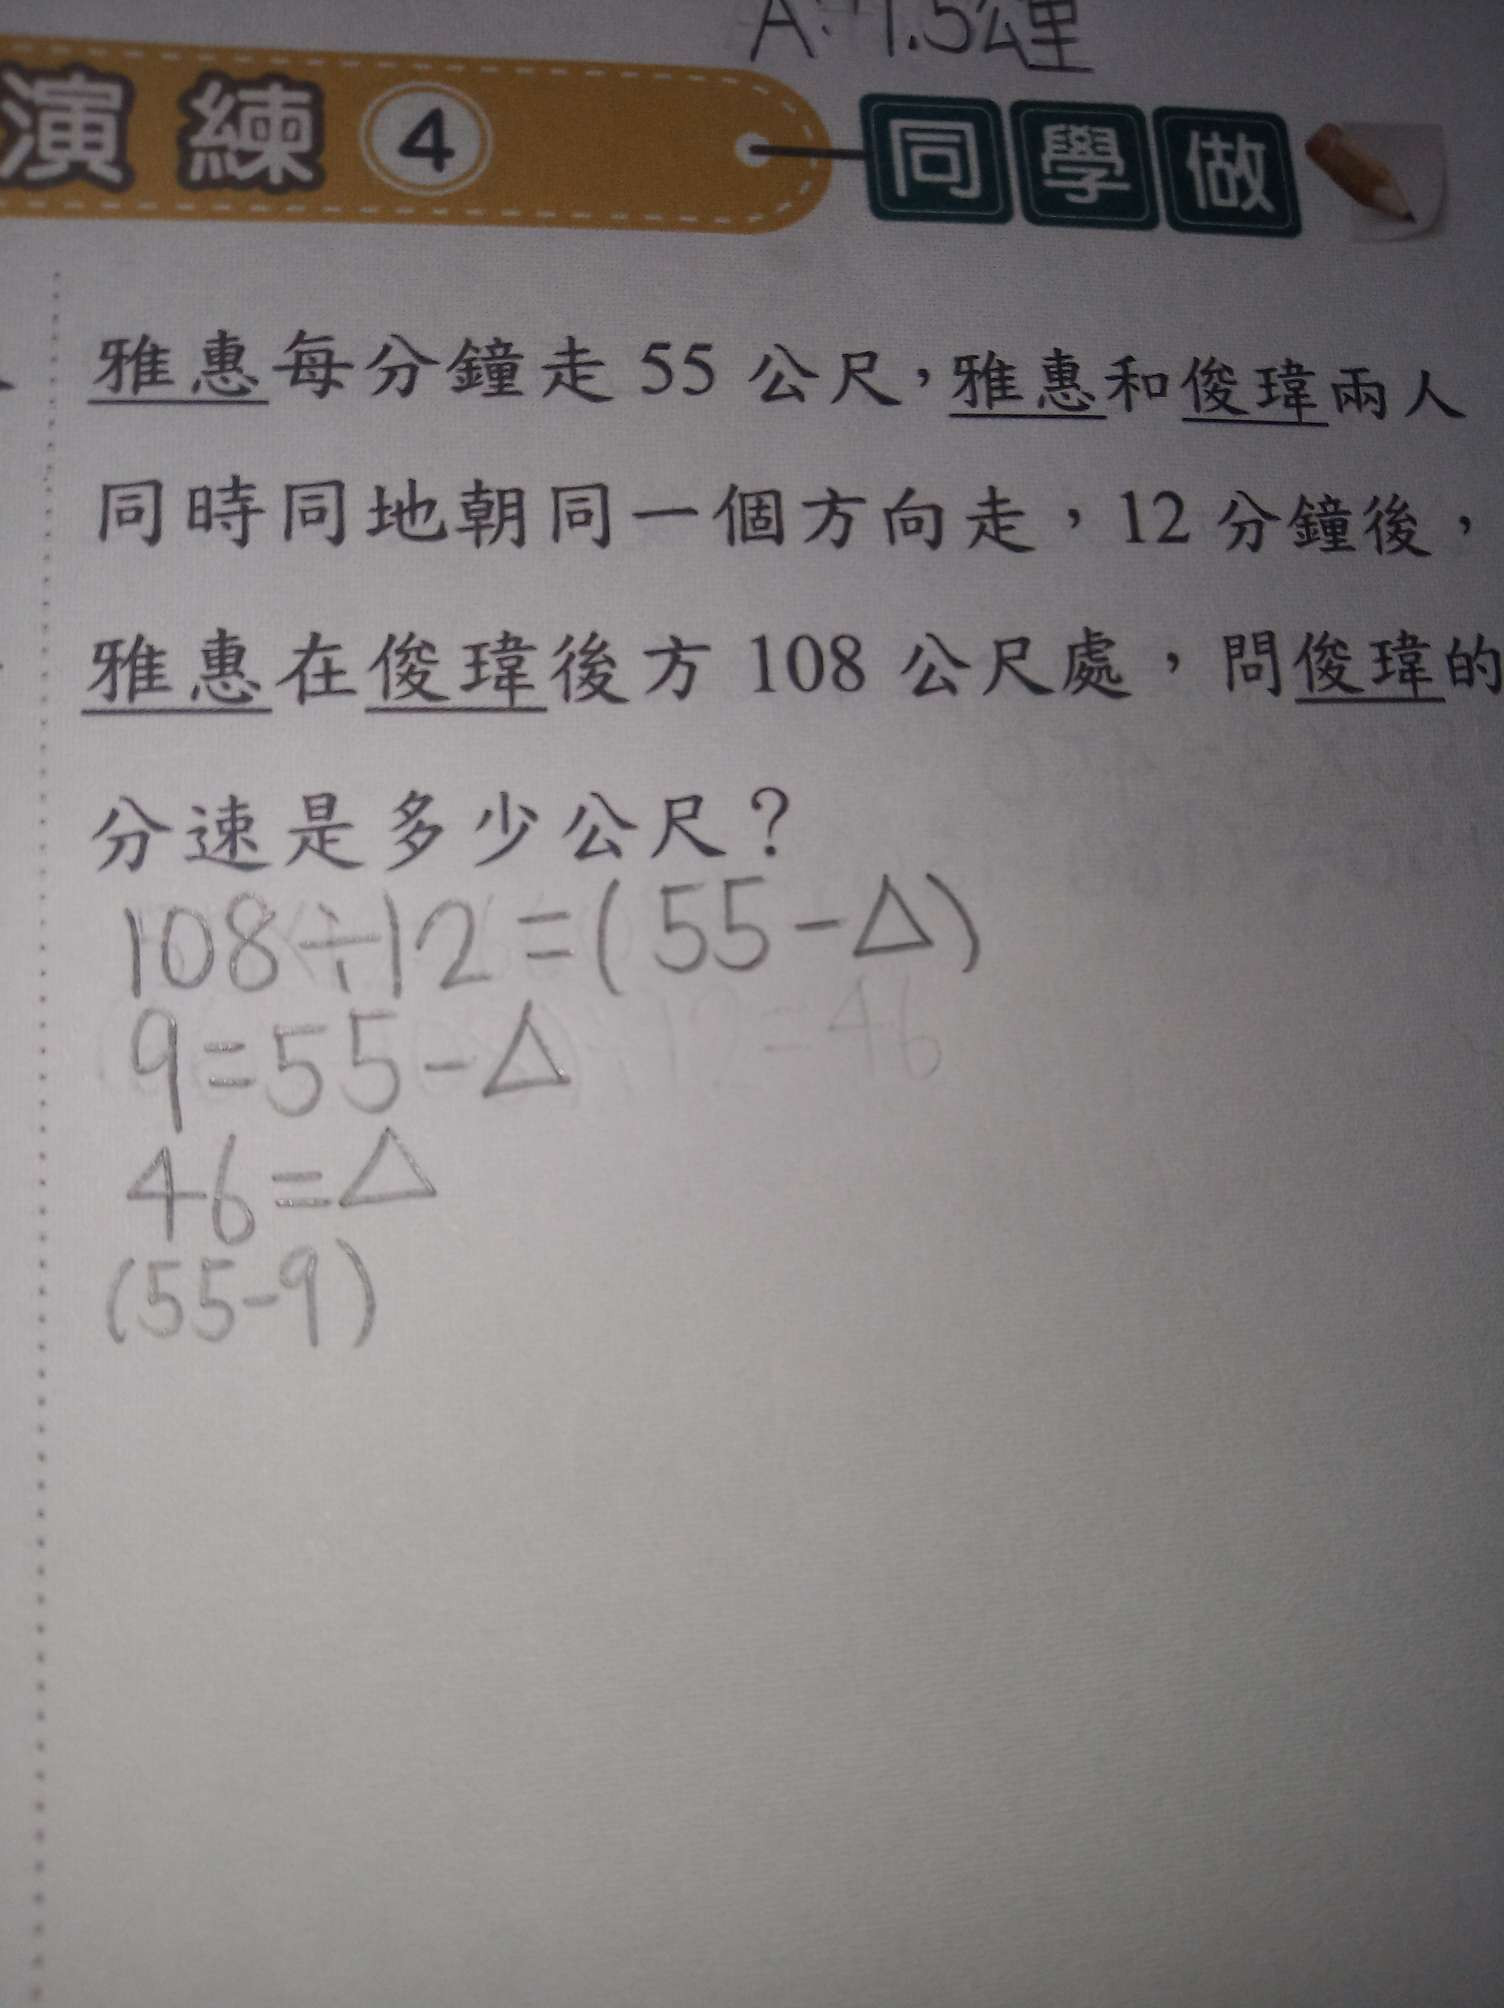 A:7.5公里
演練4 同學做
雅惠每分鐘走 55 公尺，雅惠和俊瑋兩人
同時同地朝同一個方向走，12 分鐘後，
雅惠在俊瑋後方 108 公尺處，問俊瑋的
分速是多少公尺？
108÷12=(55-△)
9=55-△
46=△
(55-9)